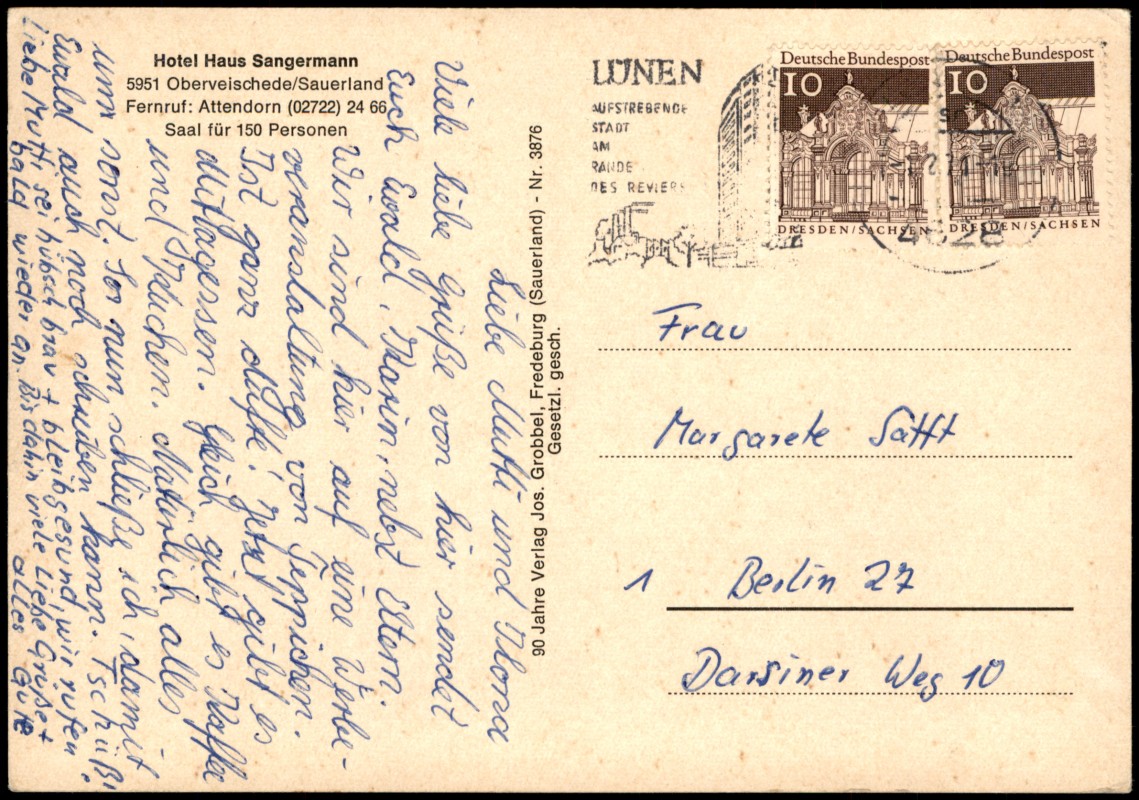 Hotel Haus Sangermann
5951 Oberveischede/Sauerland
Fernruf: Attendorn (02722) 24 66
Saal für 150 Personen
Liebe Mutti und Ilona
Viele liebe Grüße von hier sendet
Euch Ewald, Karin, nebst Eltern.
Wir sind hier auf eine Werbe-
veranstaltung von Teppichen.
Ist ganz dufte! Jetzt gibt es
Mittagessen. Gleich gibt es Kaffee
und Kuchen. Natürlich alles
umsonst. So nun schließe ich, damit
Ewald auch noch schreiben kann. Tschüß!
Liebe Mutti sei hübsch brav + bleib gesund, wir rufen
bald wieder an. Bis dahin viele liebe Grüße +
alles Gute
90 Jahre Verlag Jos. Grobbel, Fredeburg (Sauerland) - Nr. 3876
Gesetzl. gesch.
LÜNEN
AUFSTREBENDE
STADT
AM
RANDE
DES REVIERS
Deutsche Bundespost
10
DRESDEN/SACHSEN
Deutsche Bundespost
10
DRESDEN/SACHSEN
4628
Frau
Margarete Säfft
1 Berlin 27
Darsiner Weg 10